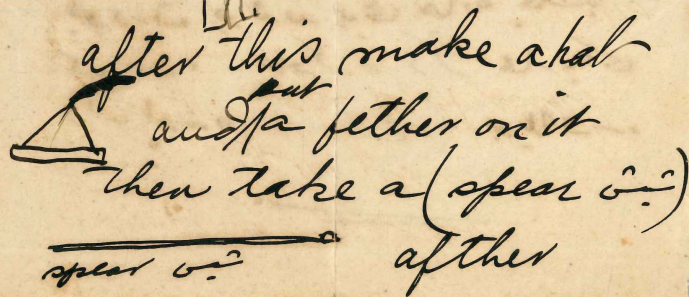 after this make a hat
and put a fether on it
then take a (spear
spear
afther